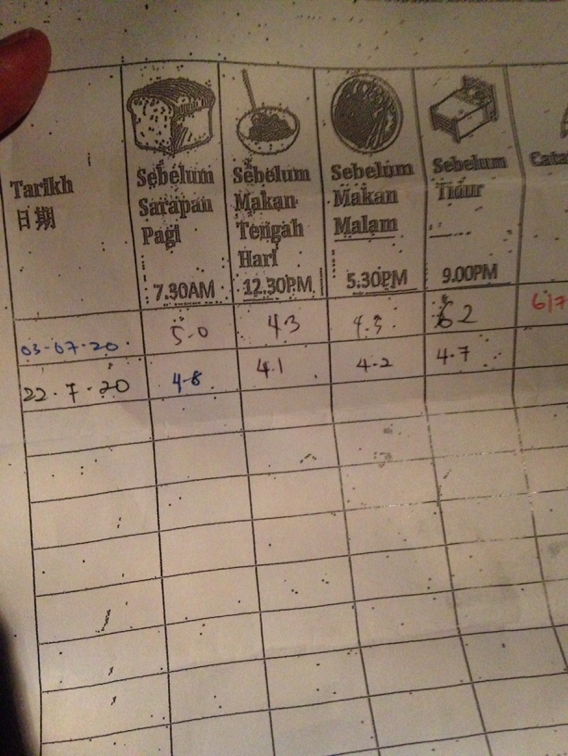 Tarikh
日期
Sebelum
Sarapan
Pagi
7.30AM
Sebelum
Makan
Tengah
Hari
12.30PM
Sebelum
Makan
Malam
5.30PM
Sebelum
Tidur
9.00PM
Cata
03-07-20 5.0 4.3 4.3 6.2 6/7
22.7.20 4.8 4.1 4.2 4.7